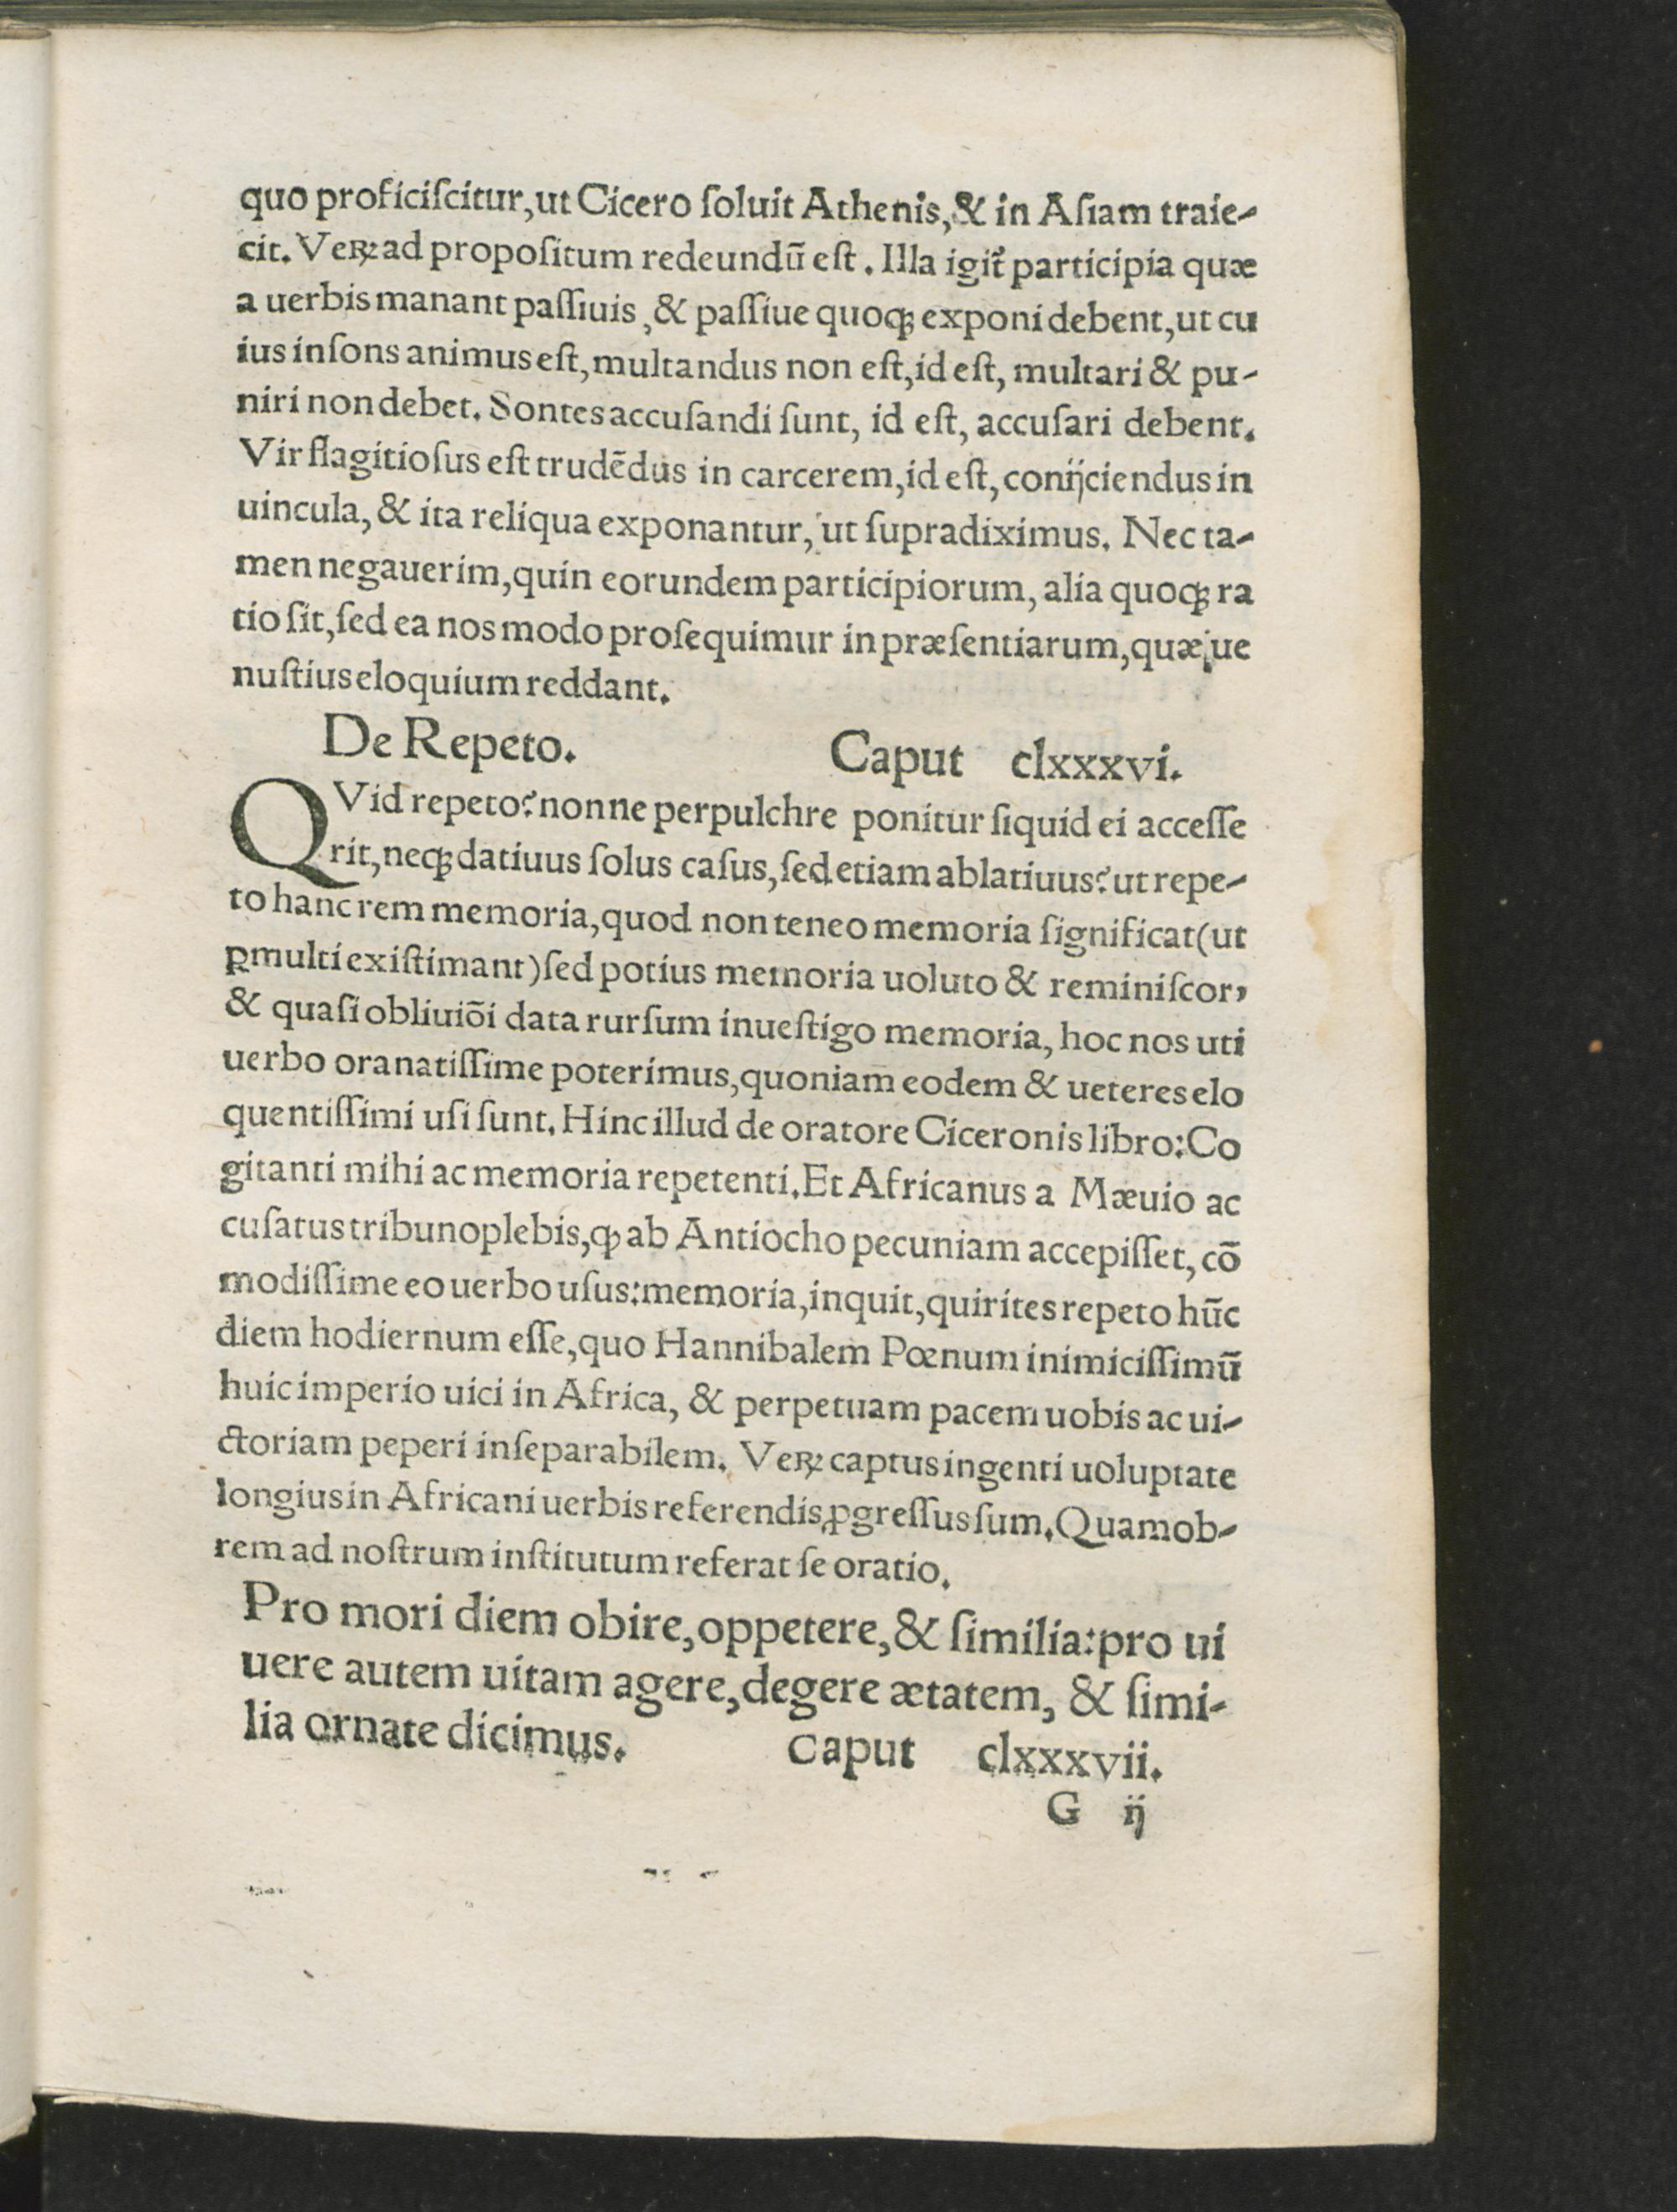 quo proficiſcitur,ut Cicero ſoluit Athenis,& in Aſiam traie-
cit. Veꝝ ad propoſitum redeundū eſt. Illa igit᷑ participia quæ
a uerbis manant paſſiuis, & paſſiue quoqꝫ exponi debent,ut cu
ius inſons animus eſt,multandus non eſt,id eſt, multari & pu-
niri non debet. Sontes accuſandi ſunt, id eſt, accuſari debent.
Vir flagitioſus eſt trudēdus in carcerem,id eſt, conijciendus in
uincula, & ita reliqua exponantur, ut ſupradiximus. Nec ta-
men negauerim,quin eorundem participiorum, alia quoqꝫ ra
tio ſit,ſed ea nos modo proſequimur in præſentiarum,quæ ue
nuſtius eloquium reddant.
De Repeto. Caput clxxxvi.
QVid repeto?nonne perpulchre ponitur ſiquid ei acceſſe
rit,neqꝫ datiuus ſolus caſus,ſed etiam ablatiuus?ut repe-
to hanc rem memoria,quod non teneo memoria ſignificat(ut
ꝑmulti exiſtimant)ſed potius memoria uoluto & reminiſcor,
& quaſi obliuiōi data rurſum inueſtigo memoria, hoc nos uti
uerbo oranatiſſime poterimus,quoniam eodem & ueteres elo
quentiſſimi uſi ſunt. Hinc illud de oratore Ciceronis libro:Co
gitanti mihi ac memoria repetenti. Et Africanus a Mæuio ac
cuſatus tribuno plebis,ꝙ ab Antiocho pecuniam accepiſſet, cō
modiſſime eo uerbo uſus:memoria,inquit,quirites repeto hūc
diem hodiernum eſſe,quo Hannibalem Pœnum inimiciſſimū
huic imperio uici in Africa, & perpetuam pacem uobis ac ui-
ctoriam peperi inſeparabilem. Veꝝ captus ingenti uoluptate
longius in Africani uerbis referendis ꝓgreſſus ſum. Quamob-
rem ad noſtrum inſtitutum referat ſe oratio.
Pro mori diem obire,oppetere,& ſimilia:pro ui
uere autem uitam agere,degere ætatem, & ſimi-
lia ornate dicimus. Caput clxxxvii.
G ij